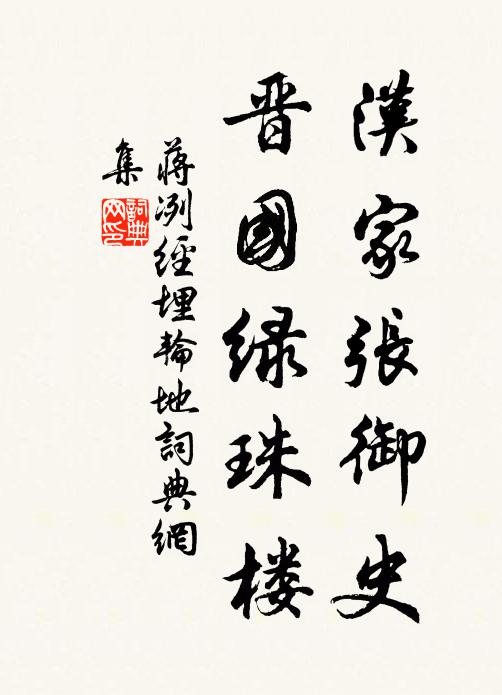 漢家張御史
晋國绿珠楼
蔣冽經埋輪地詞典網
集
詞典網印